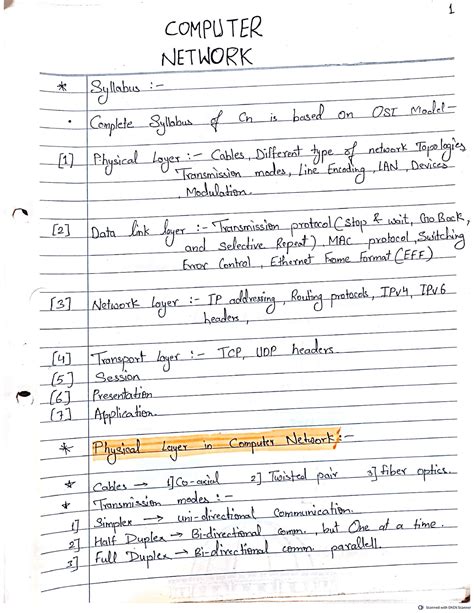 1
COMPUTER
NETWORK
* Syllabus :-
• Complete Syllabus of Cn is based on OSI Model-
[1] Physical Layer :- Cables, Different type of network Topologies
Transmission modes, Line Encoding, LAN, Devices
Modulation.
[2] Data link layer :- Transmission protocol (Stop & wait, Go Back,
and Selective Repeat), MAC protocol, Switching
Error Control, Ethernet Frame Format (EFF)
[3] Network Layer :- IP addressing, Routing protocols, IPv4, IPv6
headers,
[4] Transport layer :- TCP, UDP headers.
[5] Session
[6] Presentation
[7] Application.
* Physical Layer in Computer Network :-
* Cables → 1] Co-axial 2] Twisted pair 3] fiber optics.
* Transmission modes :-
1] Simplex → uni-directional communication.
2] Half Duplex → Bi-directional comm., but One at a time.
3] Full Duplex → Bi-directional comm. parallell.
Scanned with OKEN Scanner